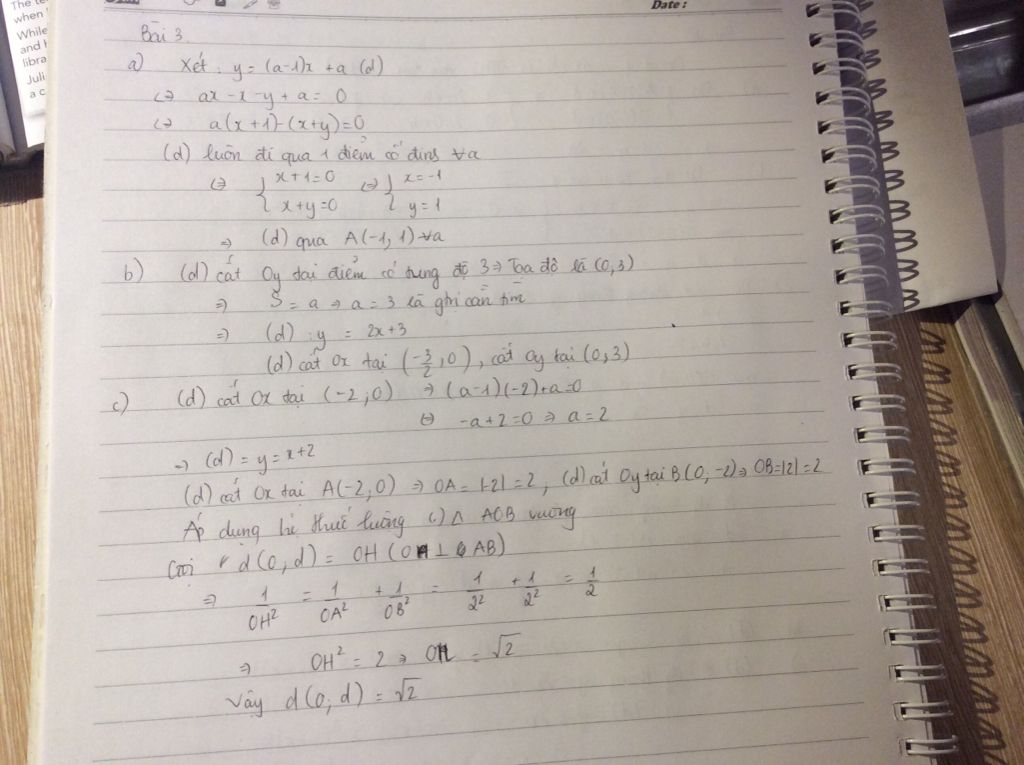 The te
when
While
and
libra
Juli
a c
Date :
Bài 3
a) Xét : y = (a-1)x + a (d)
<=> ax - x - y + a = 0
<=> a(x+1) - (x+y) = 0
(d) luôn đi qua 1 điểm cố định ∀a
<=> { x+1=0 x+y=0 <=> { x=-1 y=1
=> (d) qua A(-1, 1) ∀a
b) (d) cắt Oy tại điểm có tung độ 3 => Tọa độ là (0,3)
=> 3 = a => a = 3 là ghi cần tìm
=> (d) : y = 2x+3
(d) cắt Ox tại (-3/2, 0), cắt Oy tại (0,3)
c) (d) cắt Ox tại (-2,0) => (a-1)(-2)+a=0
<=> -a+2=0 => a=2
=> (d) = y = x+2
(d) cắt Ox tại A(-2,0) => OA = |-2| = 2, (d) cắt Oy tại B(0,-2) => OB=|2|=2
Áp dụng hệ thức lượng Δ AOB vuông
Gọi d(O,d) = OH (OH ⊥ AB)
=> 1/OH² = 1/OA² + 1/OB² = 1/2² + 1/2² = 1/2
=> OH² = 2 => OH = √2
Vậy d(O,d) = √2